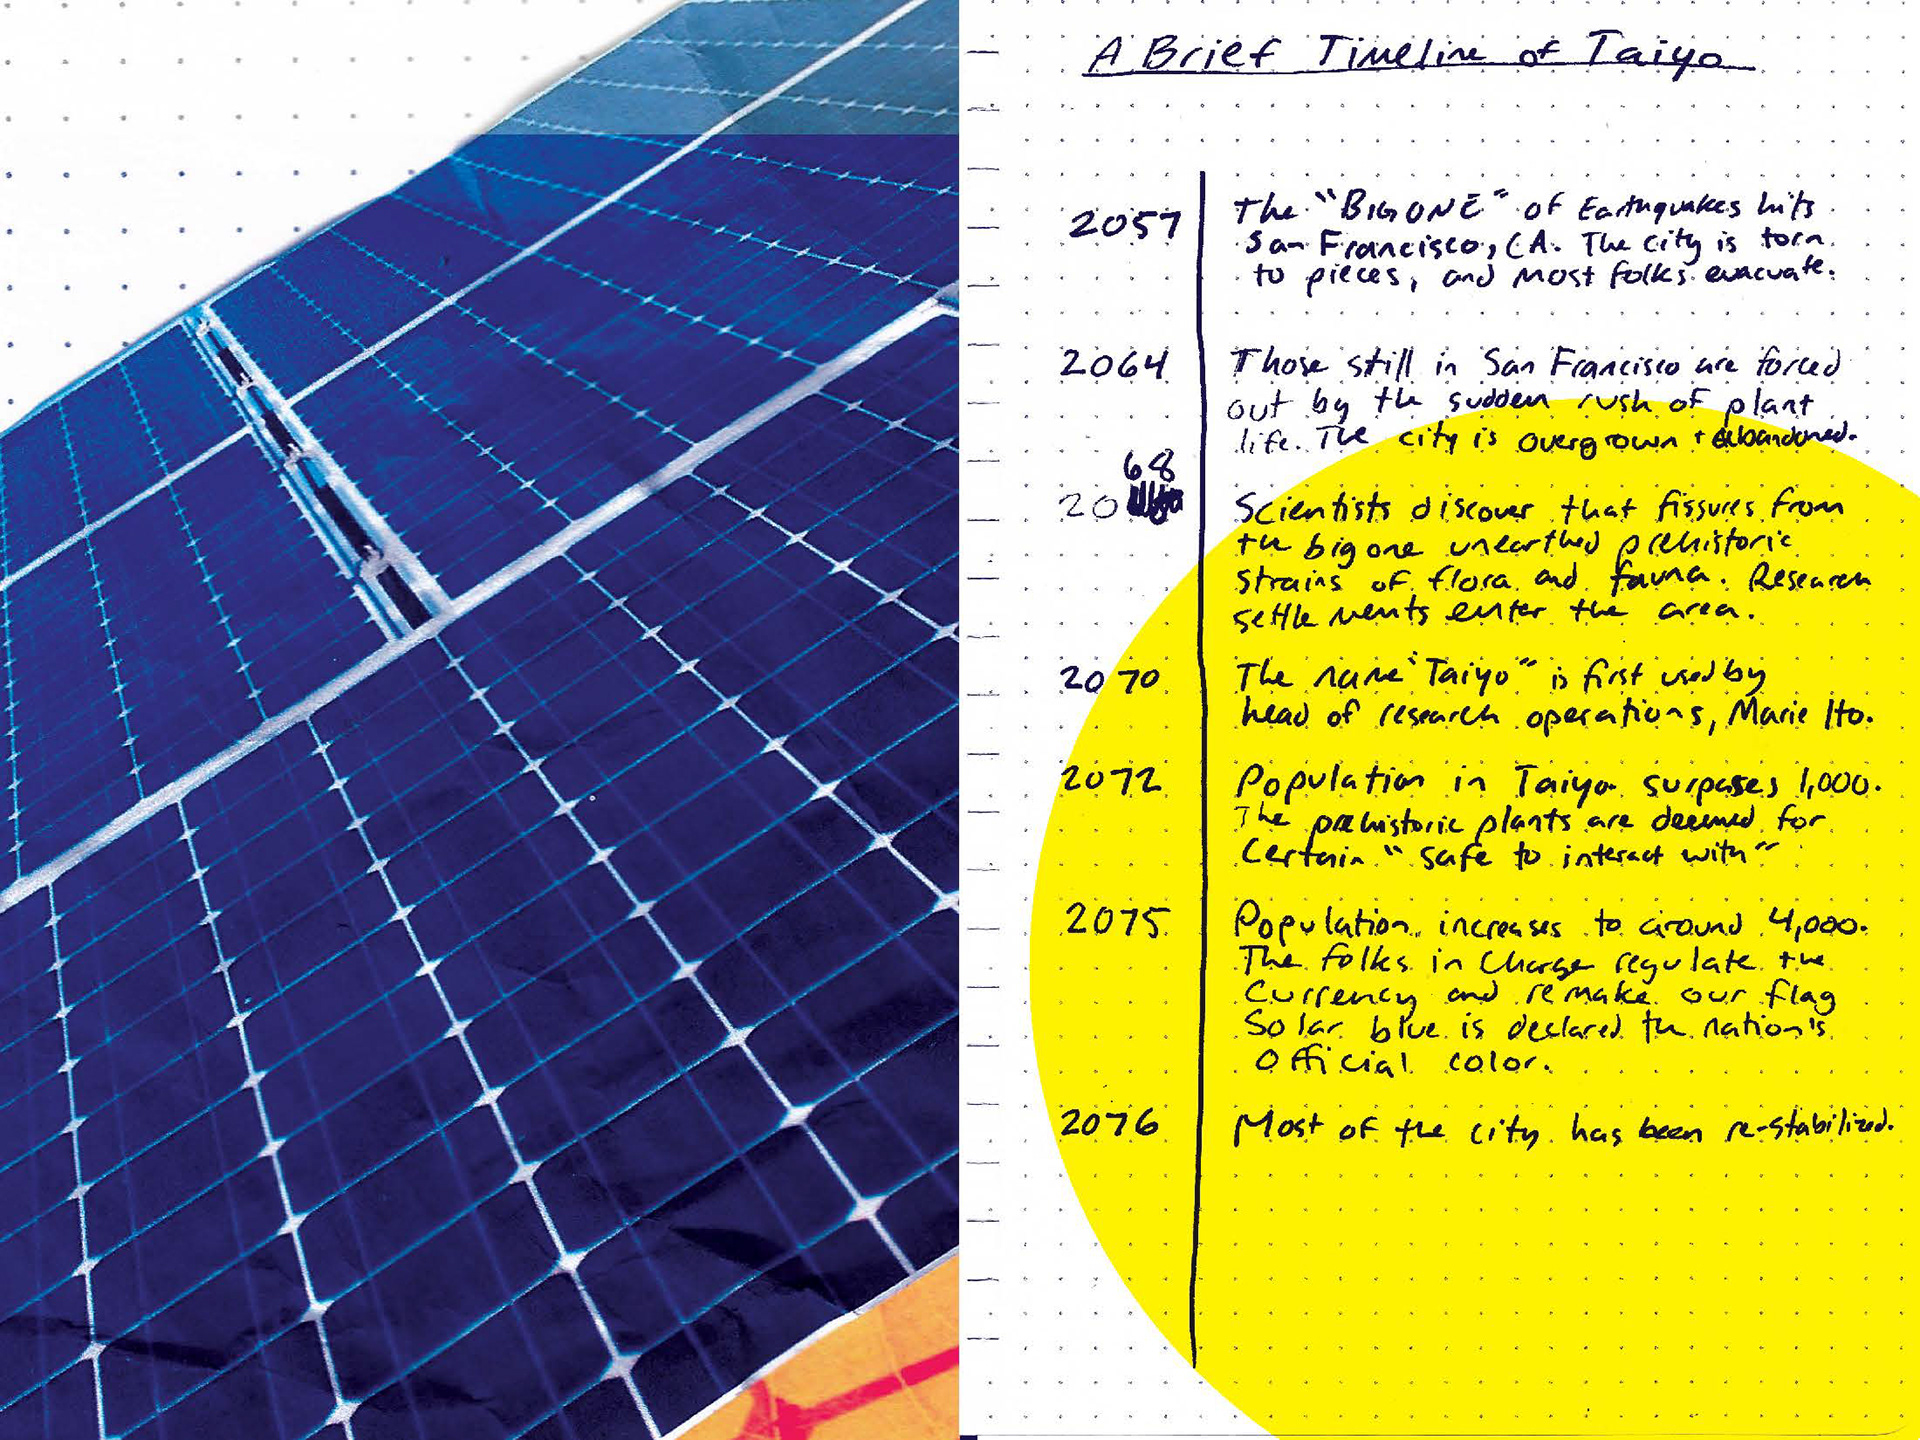 A Brief Timeline of Taiyo
2057
The "BIG ONE" of Earthquakes hits
San Francisco, CA. The city is torn
to pieces, and most folks evacuate.
2064
Those still in San Francisco are forced
out by the sudden rush of plant
life. The city is overgrown + abandoned.
2068
Scientists discover that fissures from
the big one unearthed prehistoric
strains of flora and fauna. Research
settlements enter the area.
2070
The name "Taiyo" is first used by
head of research operations, Marie Ito.
2072
Population in Taiyo surpases 1,000.
The prehistoric plants are deemed for
certain "safe to interact with"
2075
Population increases to around 4,000.
The folks in charge regulate the
currency and remake our flag
Solar blue is declared the nation's
official color.
2076
Most of the city has been re-stabilized.